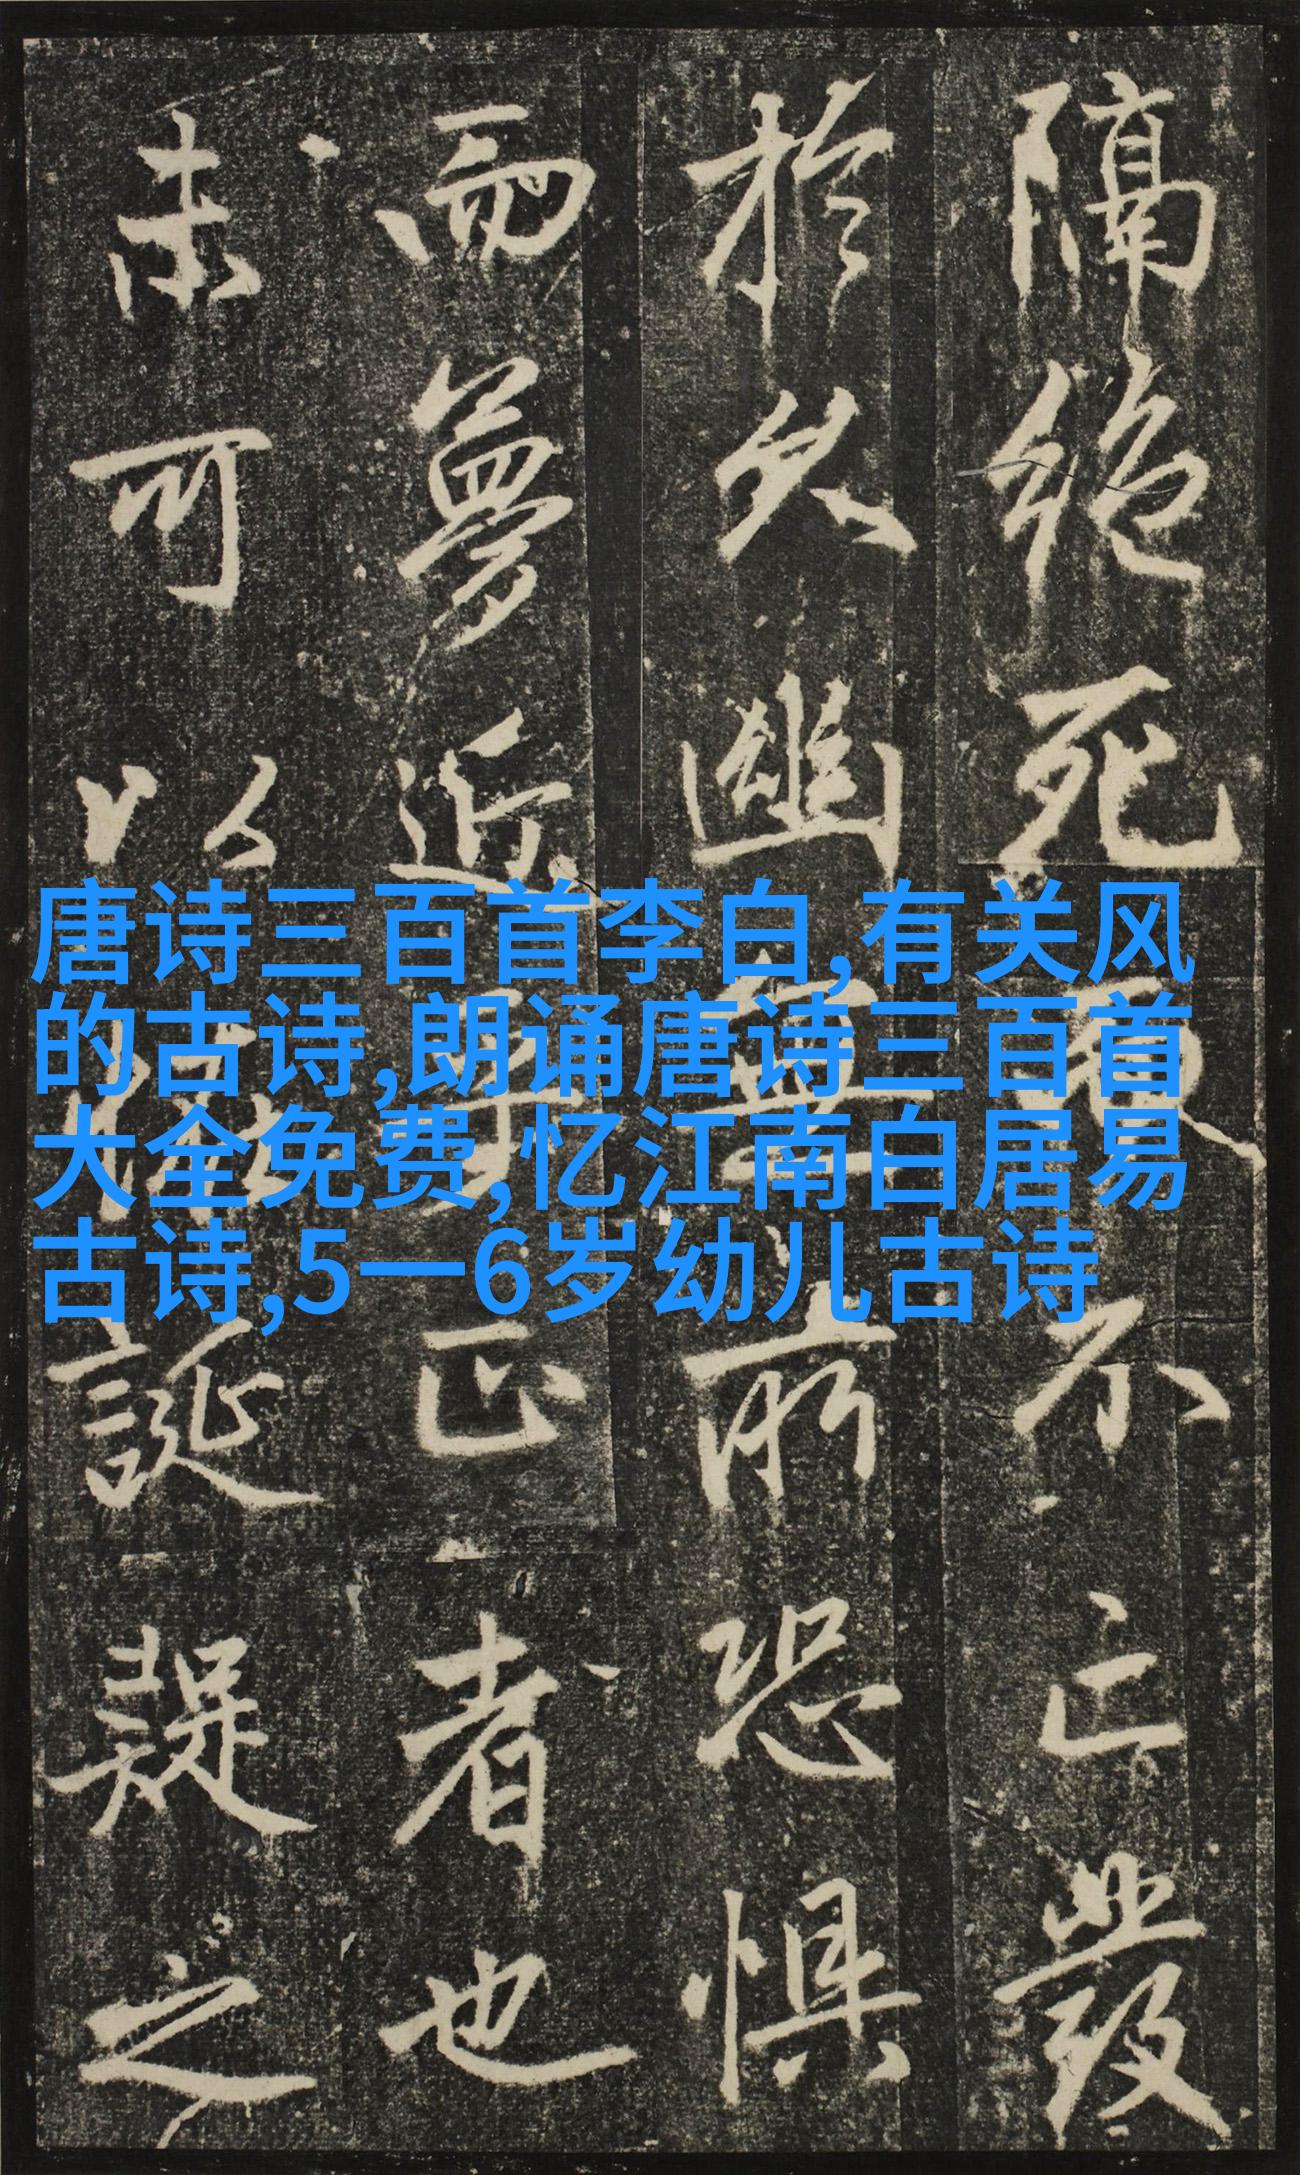 隔絶死不亡發
於久幽無所恐懼
而夢近乎正者也
未可以誕疑之
唐诗三百首李白,有关风
的古诗,朗诵唐诗三百首
大全免费,忆江南白居易
古诗,5一6岁幼儿古诗